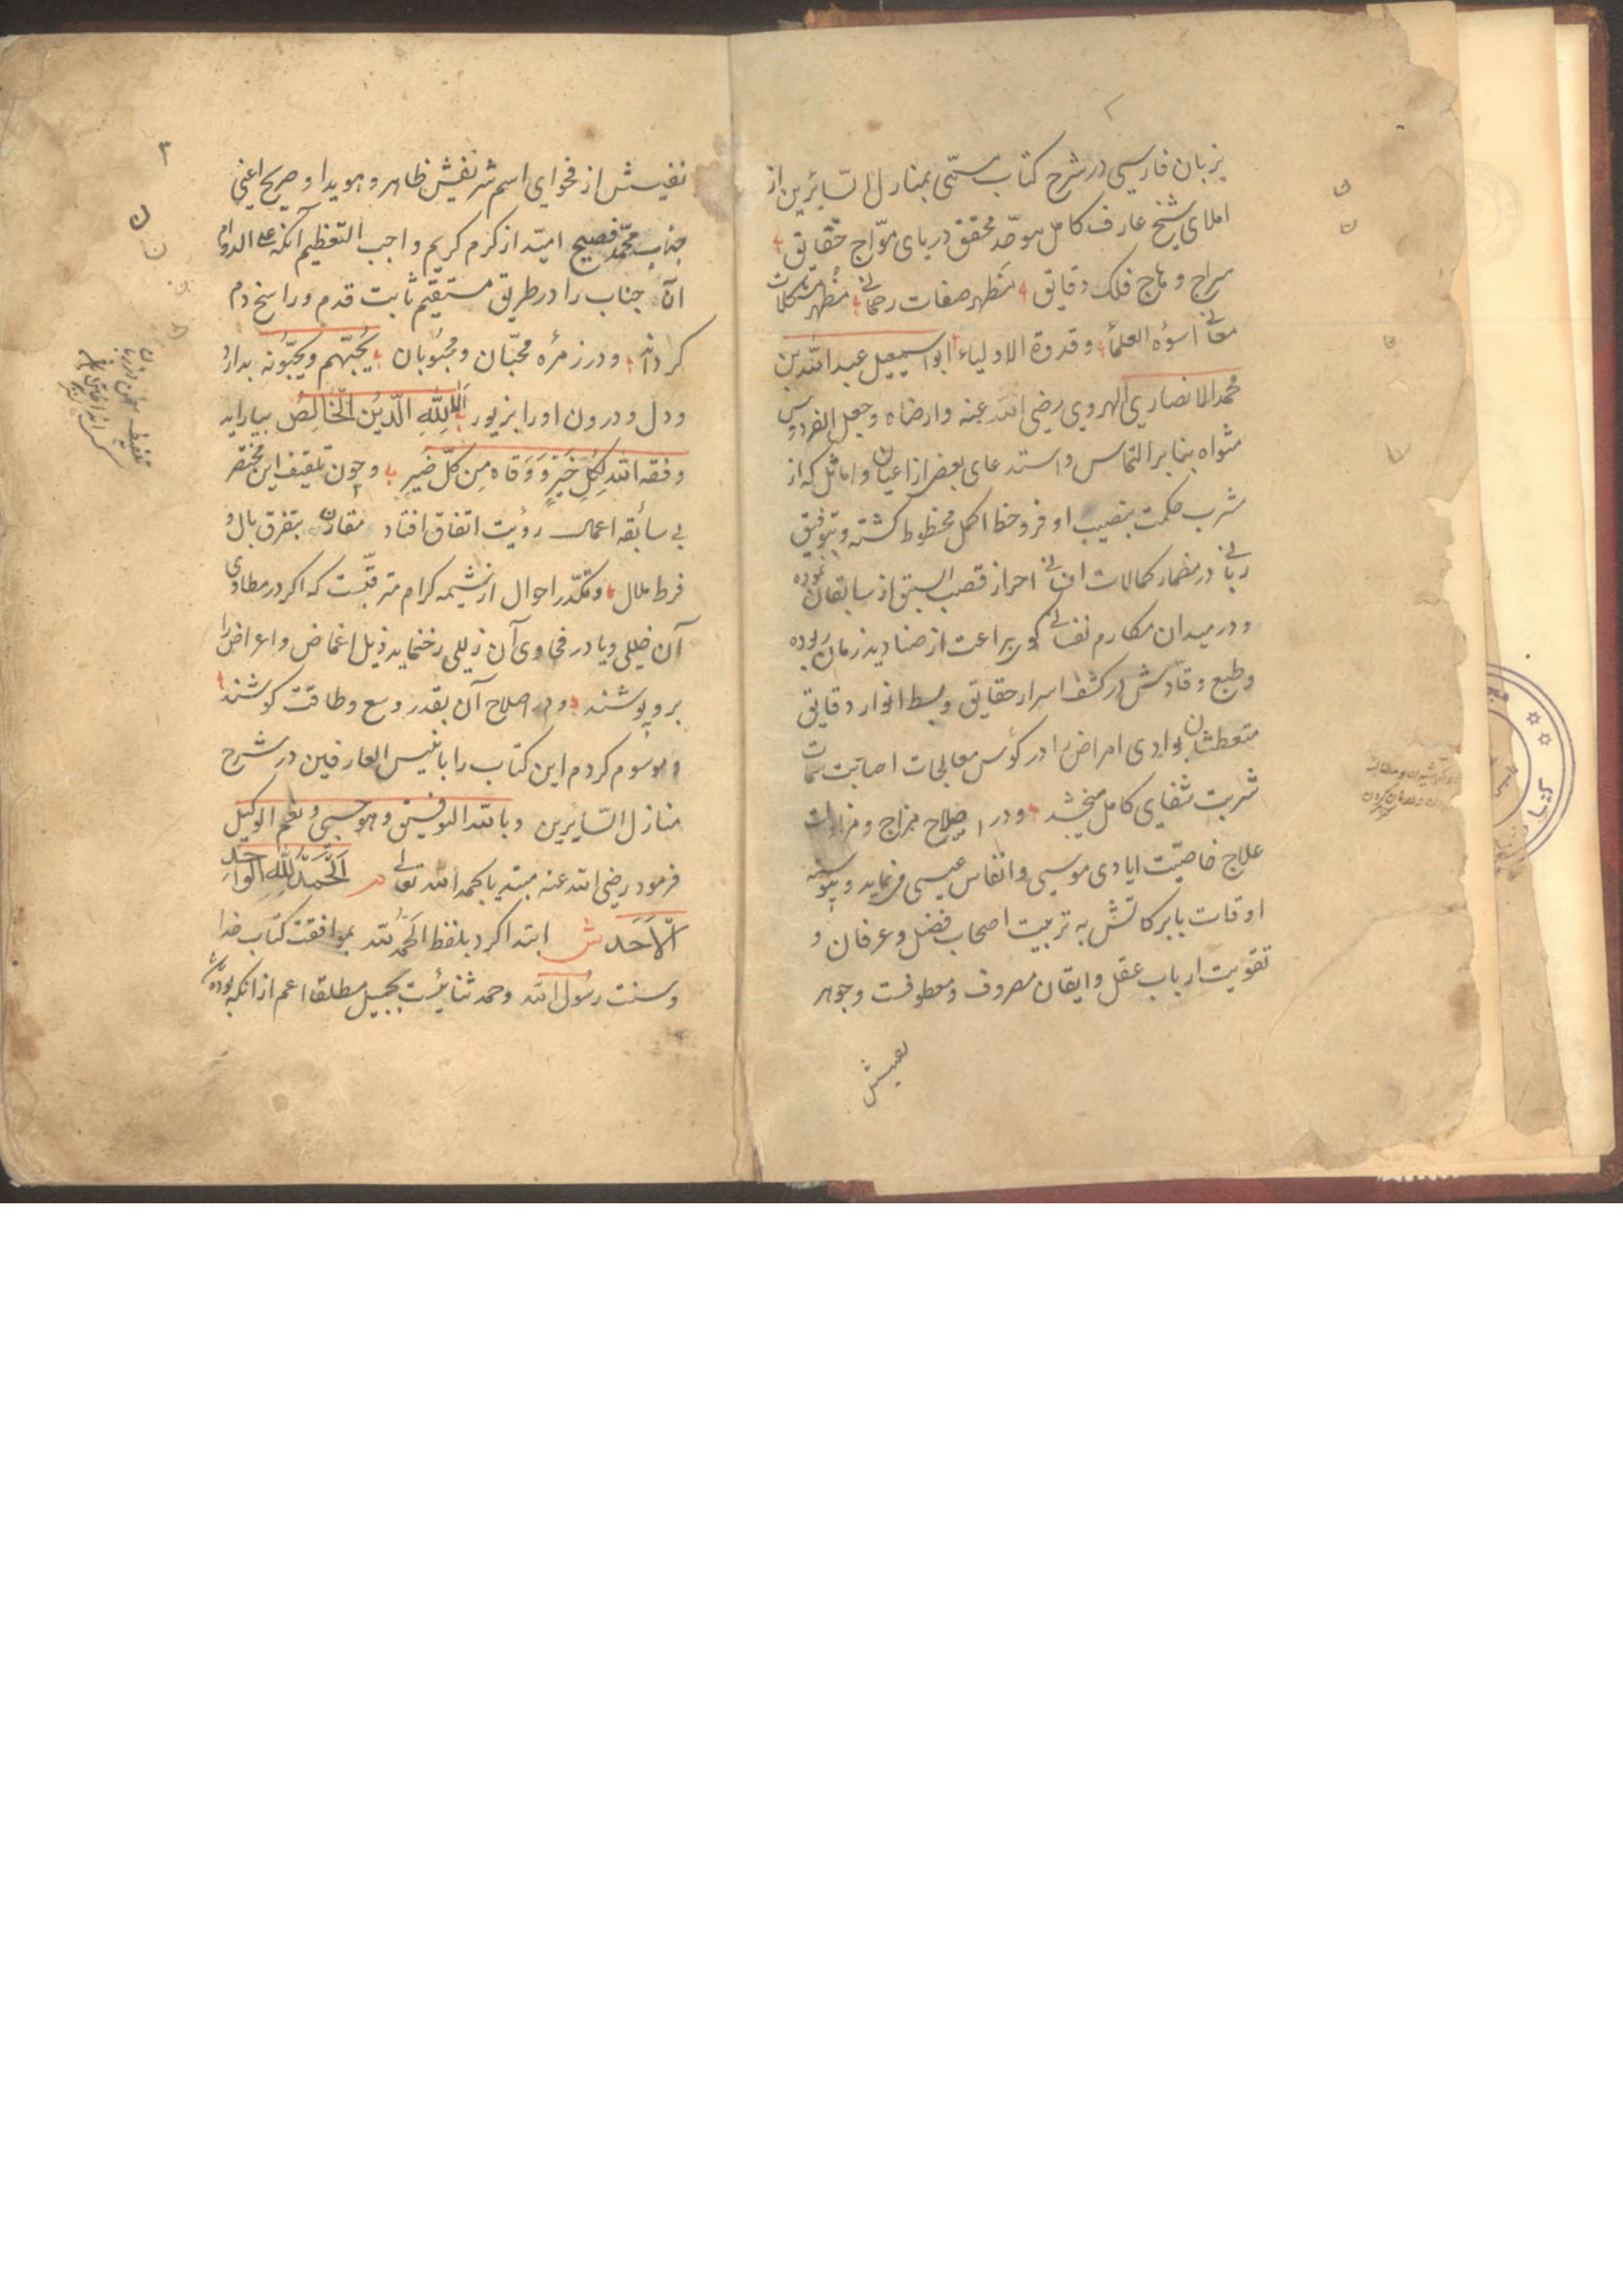 ۲
بزبان فارسی در شرح کتاب مسمّی بمنازل السّایرین از
املای شیخ عارف کامل موحّد محقق دریای موّاج حقایق
سراج وهاج فلک دقایق مَظهر صفات رحمانی مُظهر مشکلات
معانی اسؤه العلمأ وقدوة الاولیاء ابو اسمعیل عبد الله بن
محمد الانصاری الهروی رضی الله عنه وارضاه وجعل الفردوس
مثواه بنابر التماس واستدعای بعض از اعیان واماثل که از
مشرب حکمت بنصیب اوفر وحظ اکمل محظوظ کشته وبتوفیق
ربانی در مضمار کمالات انسانی احراز قصب السبق از سابقان نموده
ودر میدان مکارم نفسانی کوی براعت از صنادید زمان ربوده
وطبع وقادش در کشف اسرار حقایق وبسط انوار دقایق
متعطشان بوادی امراض را در کؤس معالجات اصابت سمات
شربت شفای کامل میبخشد ودر اصلاح مزاج و
علاج خاصیّت ایادی موسی وانفاس عیسی مینماید وپیوسته
اوقات بابرکاتش به تربیت اصحاب فضل وعرفان و
تقویت ارباب عقل وایقان مصروف ومعطوفست وجوهر
نفیسش
۳
نفیسش از فحوای اسم شریفش ظاهر وهویدا وصریح اعنی
جناب محمّد فصیح امید از کرم کریم واجب التعظیم آنکه علی الدوام
آن جناب را در طریق مستقیم ثابت قدم وراسخ دم
کرداند ودر زمرهٔ محبّان ومحبوبان یُحبّهم ویحبّونه بدارد
ودل ودرون او را بزیور اَلا لِلّهِ الدّینُ الخَالِصُ بیاراید
وفقه الله لِکُلِّ خَیْرٍ وَوَقاه مِن کلّ ضَیرٍ وچون تلفیف این مختصر
بی سابقه اعمال رؤیت اتفاق افتاد مقارن بتفرق بال و
فرط ملال وتکدّر احوال از شیمه کرام مترقّبست که اکر در مطاوی
آن خللی ویا در فحاوی آن زللی رخ نماید بذیل اغماض واعراض را
بروپوشند ودر اصلاح آن بقدر وسع وطاقت کوشند
وموسوم کردم این کتاب را بانیس العارفین در شرح
منازل السّایرین وبالله التوفیق وهو حسبی ونعم الوکیل
فرمود رضی الله عنه مبتدیا بحمد الله تعالی م اَلحَمدُ لِلّهِ الوَاحِدِ
الاَحَد ش ابتدا کرد بلفظ الحمد لله بموافقت کتاب خدا
وسنت رسول الله وحمد ثنائیست بجمیل مطلقا اعم از انکه